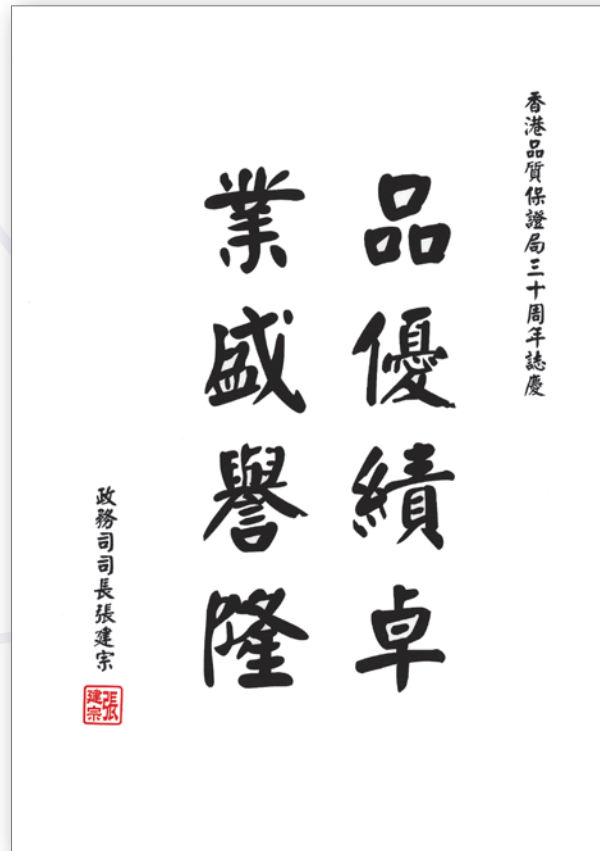 香港品質保證局三十周年誌慶
品優績卓
業盛譽隆
政務司司長張建宗
張建宗